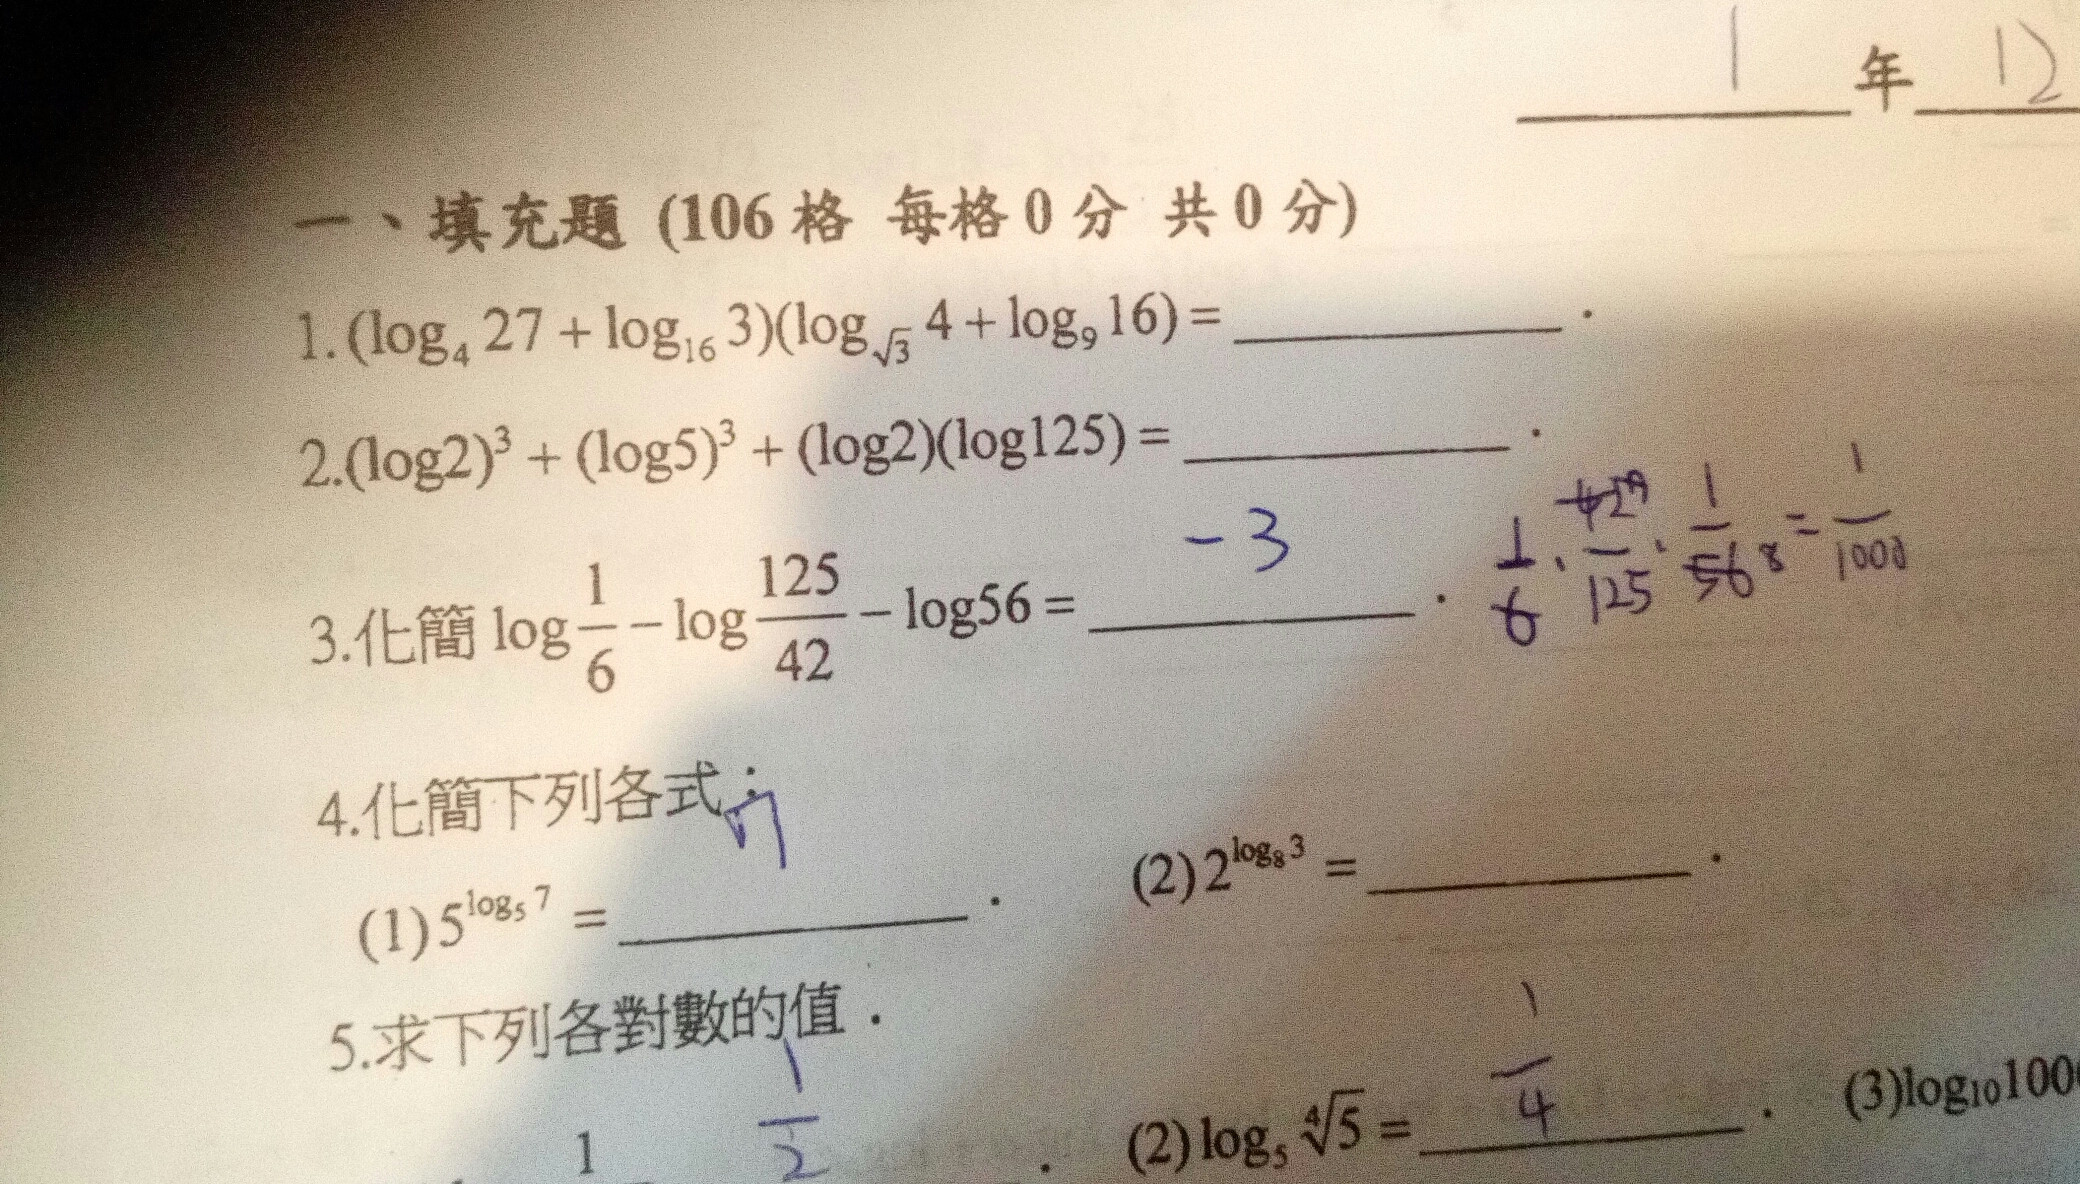 1 年 12
一、填充題 (106 格 每格 0 分 共 0 分)
1.(log₄ 27 + log₁₆ 3)(log_√3 4 + log₉ 16) = ________.
2.(log2)³ + (log5)³ + (log2)(log125) = ________.
3.化簡 log 1/6 − log 125/42 − log56 = -3 . 1/6 · 42/125 · 1/56 8 = 1/1000
4.化簡下列各式:
(1) 5^(log₅ 7) = 7 . (2) 2^(log₈ 3) = ________.
5.求下列各對數的值.
1 1/2 . (2) log₅ ⁴√5 = 1/4 . (3)log₁₀100